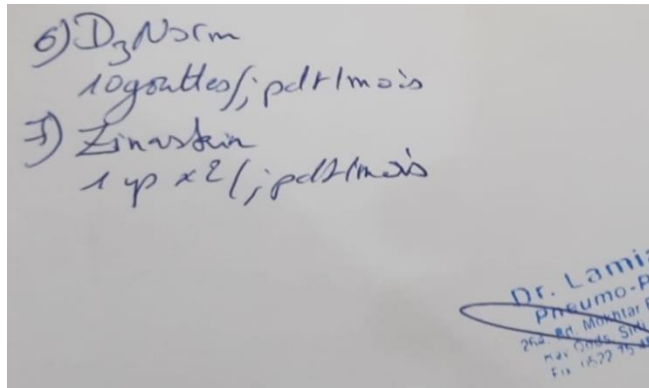 6) D3 Norm
10 gouttes/j pdt 1 mois
7) Zinaskin
1 cp x 2/j pdt 1 mois
Dr. Lamia
Pneumo-P
Bd. Mokhtar
Hay Qods, Sidi